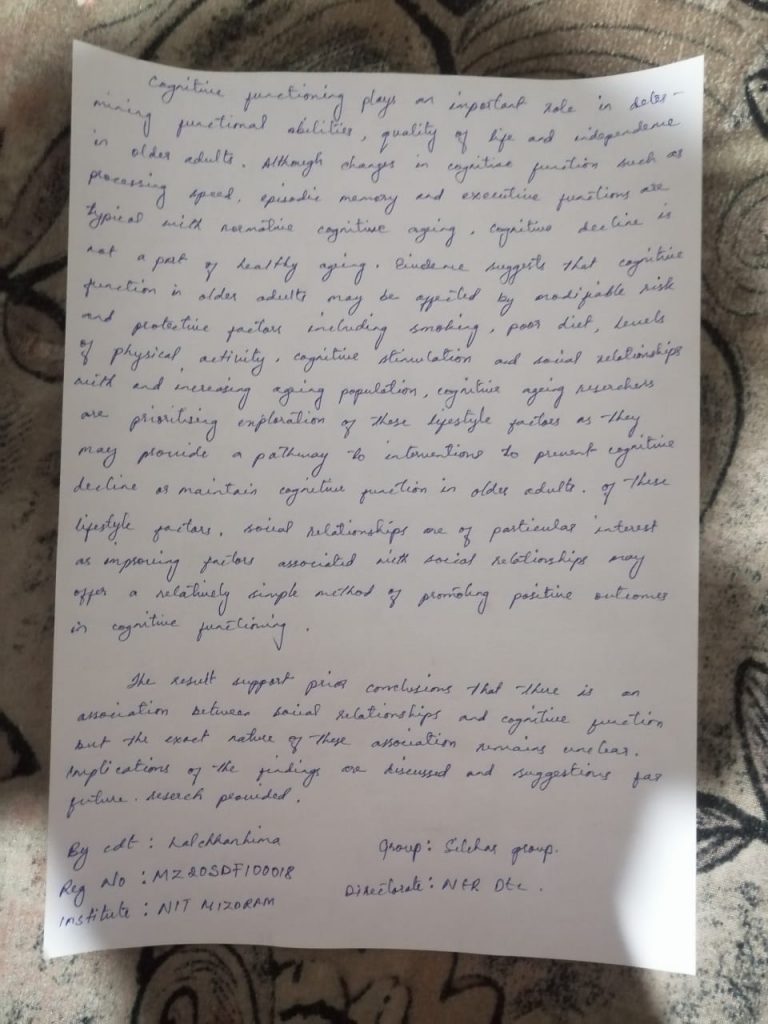 Cognitive functioning plays an important role in deter-
mining functional abilities, quality of life and independence
in older adults. Although changes in cognitive function such as
processing speed, episodic memory and executive functions are
typical with normative cognitive ageing, cognitive decline is
not a part of healthy aging. Evidence suggests that cognitive
function in older adults may be affected by modifiable risk
and protective factors including smoking, poor diet, levels
of physical activity, cognitive stimulation and social relationships
with and increasing ageing population, cognitive ageing reserchers
are prioritising exploration of these lifestyle factors as they
may provide a pathway to interventions to prevent cognitive
decline or maintain cognitive function in older adults. Of these
lifestyle factors, social relationships are of particular interest
as improving factors associated with social relationships may
offer a relatively simple method of promoting positive outcomes
in cognitive functioning.
The result support prior conclusions that there is an
association between social relationships and cognitive function
but the exact nature of these association remains unclear.
Implications of the findings are discussed and suggestions for
future reserch provided.
By cdt : Lalchhanhima
Group: Silchar group.
Reg No : MZ20SDF100018
Directorate: NER Dte.
Institute : NIT MIZORAM